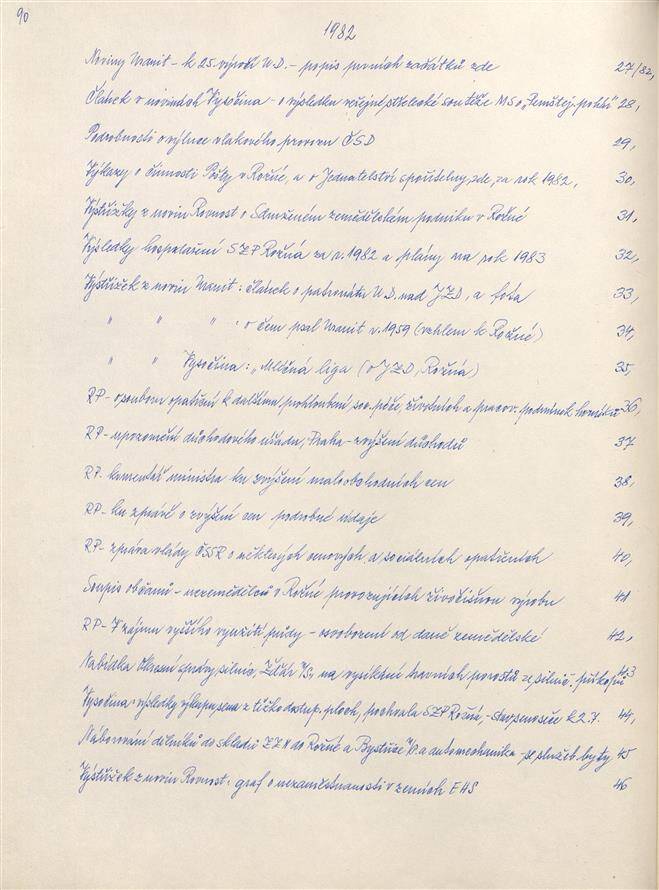 90
1982
Noviny Uranit - k 25. výročí U.D. - popis prvních začátků zde 27/82,
Článek v novinách Vysočina - o výsledku veřejné střelecké soutěže MS o „Pemštej. pohár" 28,
Podrobnosti o výluce vlakového provozu ČSD 29,
Výkazy o činnosti Pošty v Rožné, a o Jednatelství spořitelny, zde, za rok 1982, 30,
Výstřižky z novin Rovnost o Sdruženém zemědělském podniku v Rožné 31,
Výsledky hospodaření SZP Rožná za r. 1982 a plány na rok 1983 32,
Výstřižek z novin Uranit: článek o patronátu U.D. nad JZD, a fota 33,
" " " : o čem psal Uranit v r. 1959 (vzhlem k Rožné) 34,
" " Vysočina: „Mléčná liga (o JZD, Rožná) 35,
RP - o souboru opatření k dalšímu prohloubení soc. péče, životních a pracov. podmínek horníků 36,
RP - upozornění důchodového úřadu, Praha - zvýšení důchodů 37
RP. komentář ministra ku zvýšení maloobchodních cen 38,
RP - ku zprávě o zvýšení cen podrobné údaje 39,
RP - zpráva vlády ČSSR o některých cenových a sociálních opatřeních 40,
Soupis občanů - nezemědělců v Rožné provozujících živočišnou výrobu 41
RP - V zájmu vyššího využití půdy - osvobození od daně zemědělské 42,
Nabídka Okresní správy silnic, Žďár n/S, na vysekání travních porostů ze silnič. příkopů 43
Vysočina - výsledky výkupu sena z těžko dostup. ploch, pochvala SZP Rožná, - stav senoseče k 2.7. 44,
Náborování dělníků do skladů ZZN do Rožné a Bystřice n/P. a automechanika - se služeb. byty 45
Výstřižek z novin Rovnost: graf o nezaměstnanosti v zemích EHS 46